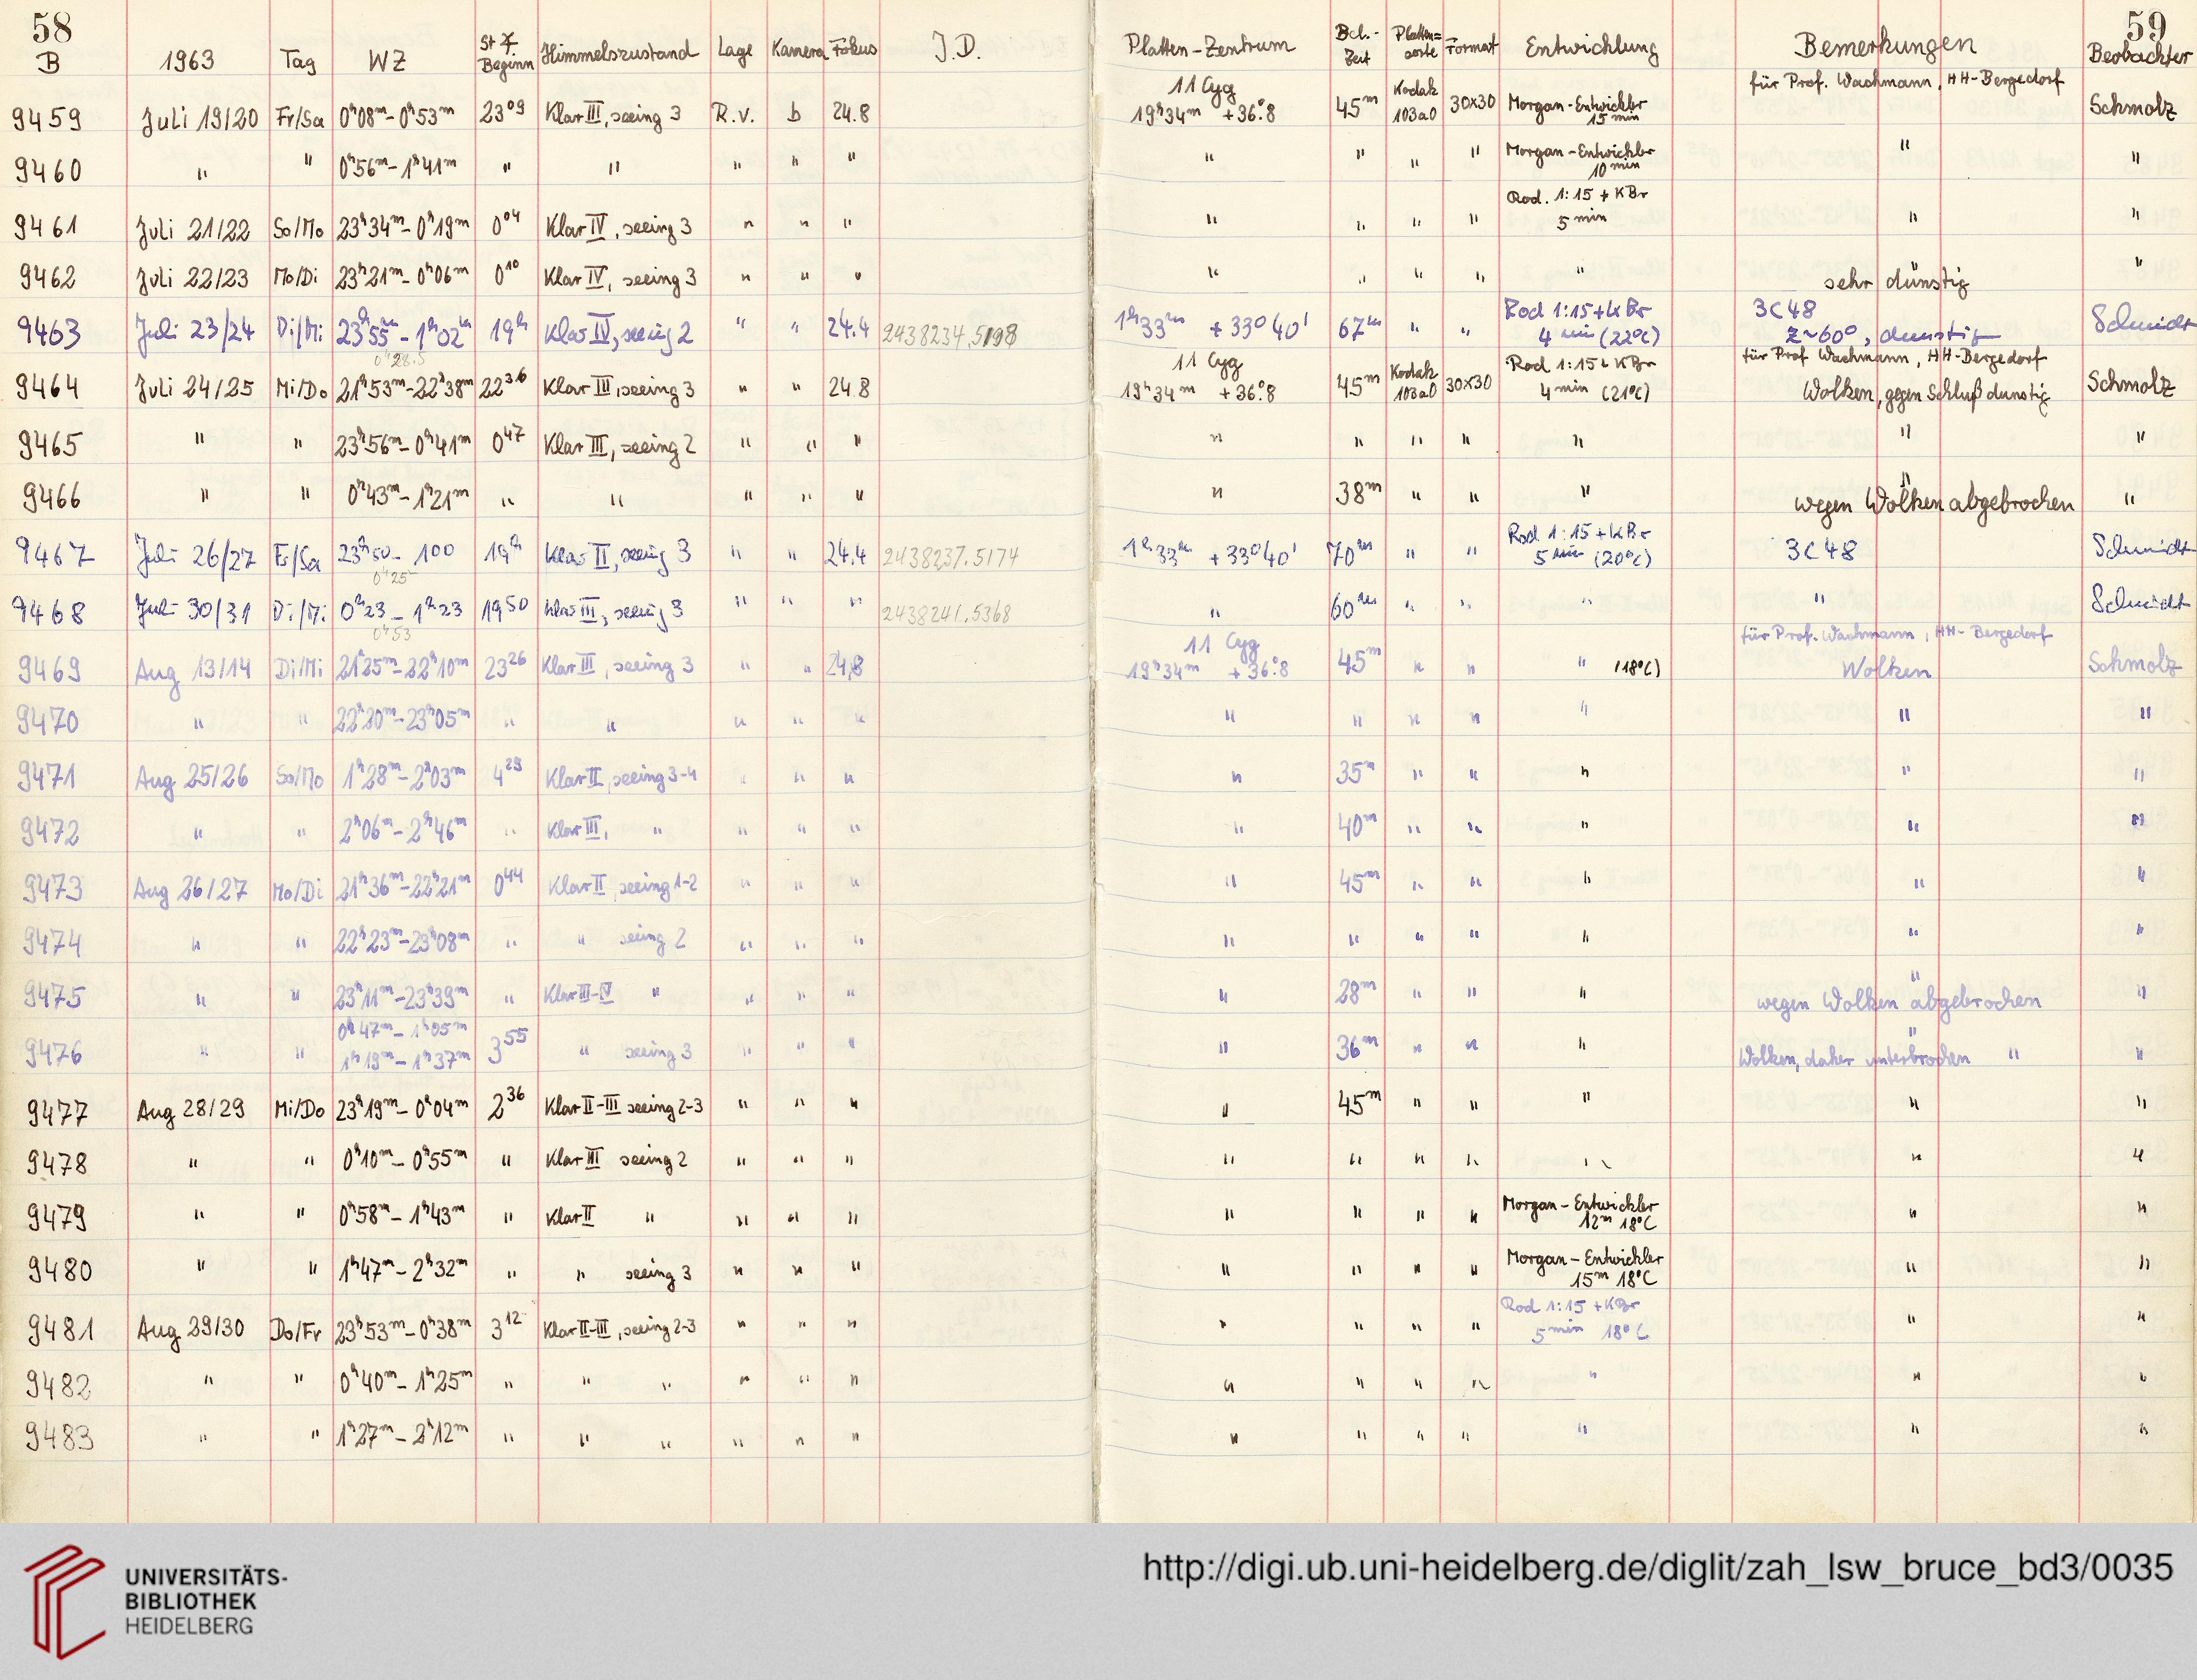 58 59
B 1963 Tag WZ St ∢ Beginn Himmelszustand Lage Kamera Fokus J.D. Platten-Zentrum Bel.-Zeit Platten=sorte Format Entwicklung Bemerkungen Beobachter
9459 Juli 19/20 Fr/Sa 0ʰ08ᵐ-0ʰ53ᵐ 23⁰⁹ Klar III, seeing 3 R.V. b 24.8 11 Cyg 19ʰ34ᵐ +36°.8 45ᵐ Kodak 103aO 30x30 Morgan-Entwickler 15 min für Prof. Wachmann, HH-Bergedorf Schmolz
9460 " " 0ʰ56ᵐ-1ʰ41ᵐ " " " " " " " " " Morgan-Entwickler 10 min " "
9461 Juli 21/22 So/Mo 23ʰ34ᵐ-0ʰ19ᵐ 0⁰⁴ Klar IV, seeing 3 " " " " " " " Rod. 1:15 + KBr 5 min " "
9462 Juli 22/23 Mo/Di 23ʰ21ᵐ-0ʰ06ᵐ 0¹⁰ Klar IV, seeing 3 " " " " " " " " " sehr dunstig "
9463 Juli 23/24 Di/Mi 23ʰ55ᵐ-1ʰ02ᵐ 19ʰ Klar IV, seeing 2 " " 24.4 2438234.5198 1ʰ33ᵐ +33°40' 67ᵐ " " Rod 1:15+KBr 4 min (22°C) 3C48 z~60°, dunstig Schmidt
0ʰ28.5
9464 Juli 24/25 Mi/Do 21ʰ53ᵐ-22ʰ38ᵐ 22³⁶ Klar III, seeing 3 " " 24.8 11 Cyg 19ʰ34ᵐ +36°.8 45ᵐ Kodak 103aO 30x30 Rod 1:15+KBr 4 min (21°C) für Prof Wachmann, HH-Bergedorf Wolken, gegen Schluß dunstig Schmolz
9465 " " 23ʰ56ᵐ-0ʰ41ᵐ 0⁴⁷ Klar III, seeing 2 " " " " " " " " " "
9466 " " 0ʰ43ᵐ-1ʰ21ᵐ " " " " " " 38ᵐ " " " " wegen Wolken abgebrochen "
9467 Juli 26/27 Fr/Sa 23ʰ50-100 19ʰ Klar II, seeing 3 " " 24.4 2438237.5174 1ʰ33ᵐ +33°40' 70ᵐ " " Rod 1:15+KBr 5 min (20°C) 3C48 Schmidt
0ʰ25
9468 Juli 30/31 Di/Mi 0ʰ23-1ʰ23 19⁵⁰ klar III, seeing 3 " " " 2438241.5368 " 60ᵐ " " " " Schmidt
0ʰ53
9469 Aug 13/14 Di/Mi 21ʰ25ᵐ-22ʰ10ᵐ 23²⁶ Klar III, seeing 3 " " 24,8 11 Cyg 19ʰ34ᵐ +36°.8 45ᵐ " " " (18°C) für Prof. Wachmann, HH-Bergedorf Wolken Schmolz
9470 " " 22ʰ20ᵐ-23ʰ05ᵐ " " " " " " " " " " " "
9471 Aug 25/26 So/Mo 1ʰ28ᵐ-2ʰ03ᵐ 4²⁹ Klar II, seeing 3-4 " " " " 35ᵐ " " " " "
9472 " " 2ʰ06ᵐ-2ʰ46ᵐ " Klar III, " " " " " 40ᵐ " " " " "
9473 Aug 26/27 Mo/Di 21ʰ36ᵐ-22ʰ21ᵐ 0⁴⁴ Klar II, seeing 1-2 " " " " 45ᵐ " " " " "
9474 " " 22ʰ23ᵐ-23ʰ08ᵐ " " seeing 2 " " " " " " " " " "
9475 " " 23ʰ11ᵐ-23ʰ39ᵐ " Klar III-IV " " " " " 28ᵐ " " " " wegen Wolken abgebrochen "
9476 " " 0ʰ47ᵐ-1ʰ05ᵐ 1ʰ19ᵐ-1ʰ37ᵐ 3⁵⁵ " seeing 3 " " " " 36ᵐ " " " " Wolken, daher unterbrochen " "
9477 Aug 28/29 Mi/Do 23ʰ19ᵐ-0ʰ04ᵐ 2³⁶ Klar II-III seeing 2-3 " " " " 45ᵐ " " " " "
9478 " " 0ʰ10ᵐ-0ʰ55ᵐ " Klar III seeing 2 " " " " " " " " " "
9479 " " 0ʰ58ᵐ-1ʰ43ᵐ " Klar II " " " " " " " " Morgan-Entwickler 12ᵐ 18°C " "
9480 " " 1ʰ47ᵐ-2ʰ32ᵐ " " seeing 3 " " " " " " " Morgan-Entwickler 15ᵐ 18°C " "
9481 Aug 29/30 Do/Fr 23ʰ53ᵐ-0ʰ38ᵐ 3¹² Klar II-III, seeing 2-3 " " " " " " " Rod 1:15 +KBr 5 min 18°C " "
9482 " " 0ʰ40ᵐ-1ʰ25ᵐ " " " " " " " " " " " " "
9483 " " 1ʰ27ᵐ-2ʰ12ᵐ " " " " " " " " " " " " "
UNIVERSITÄTS-
BIBLIOTHEK
HEIDELBERG
http://digi.ub.uni-heidelberg.de/diglit/zah_lsw_bruce_bd3/0035